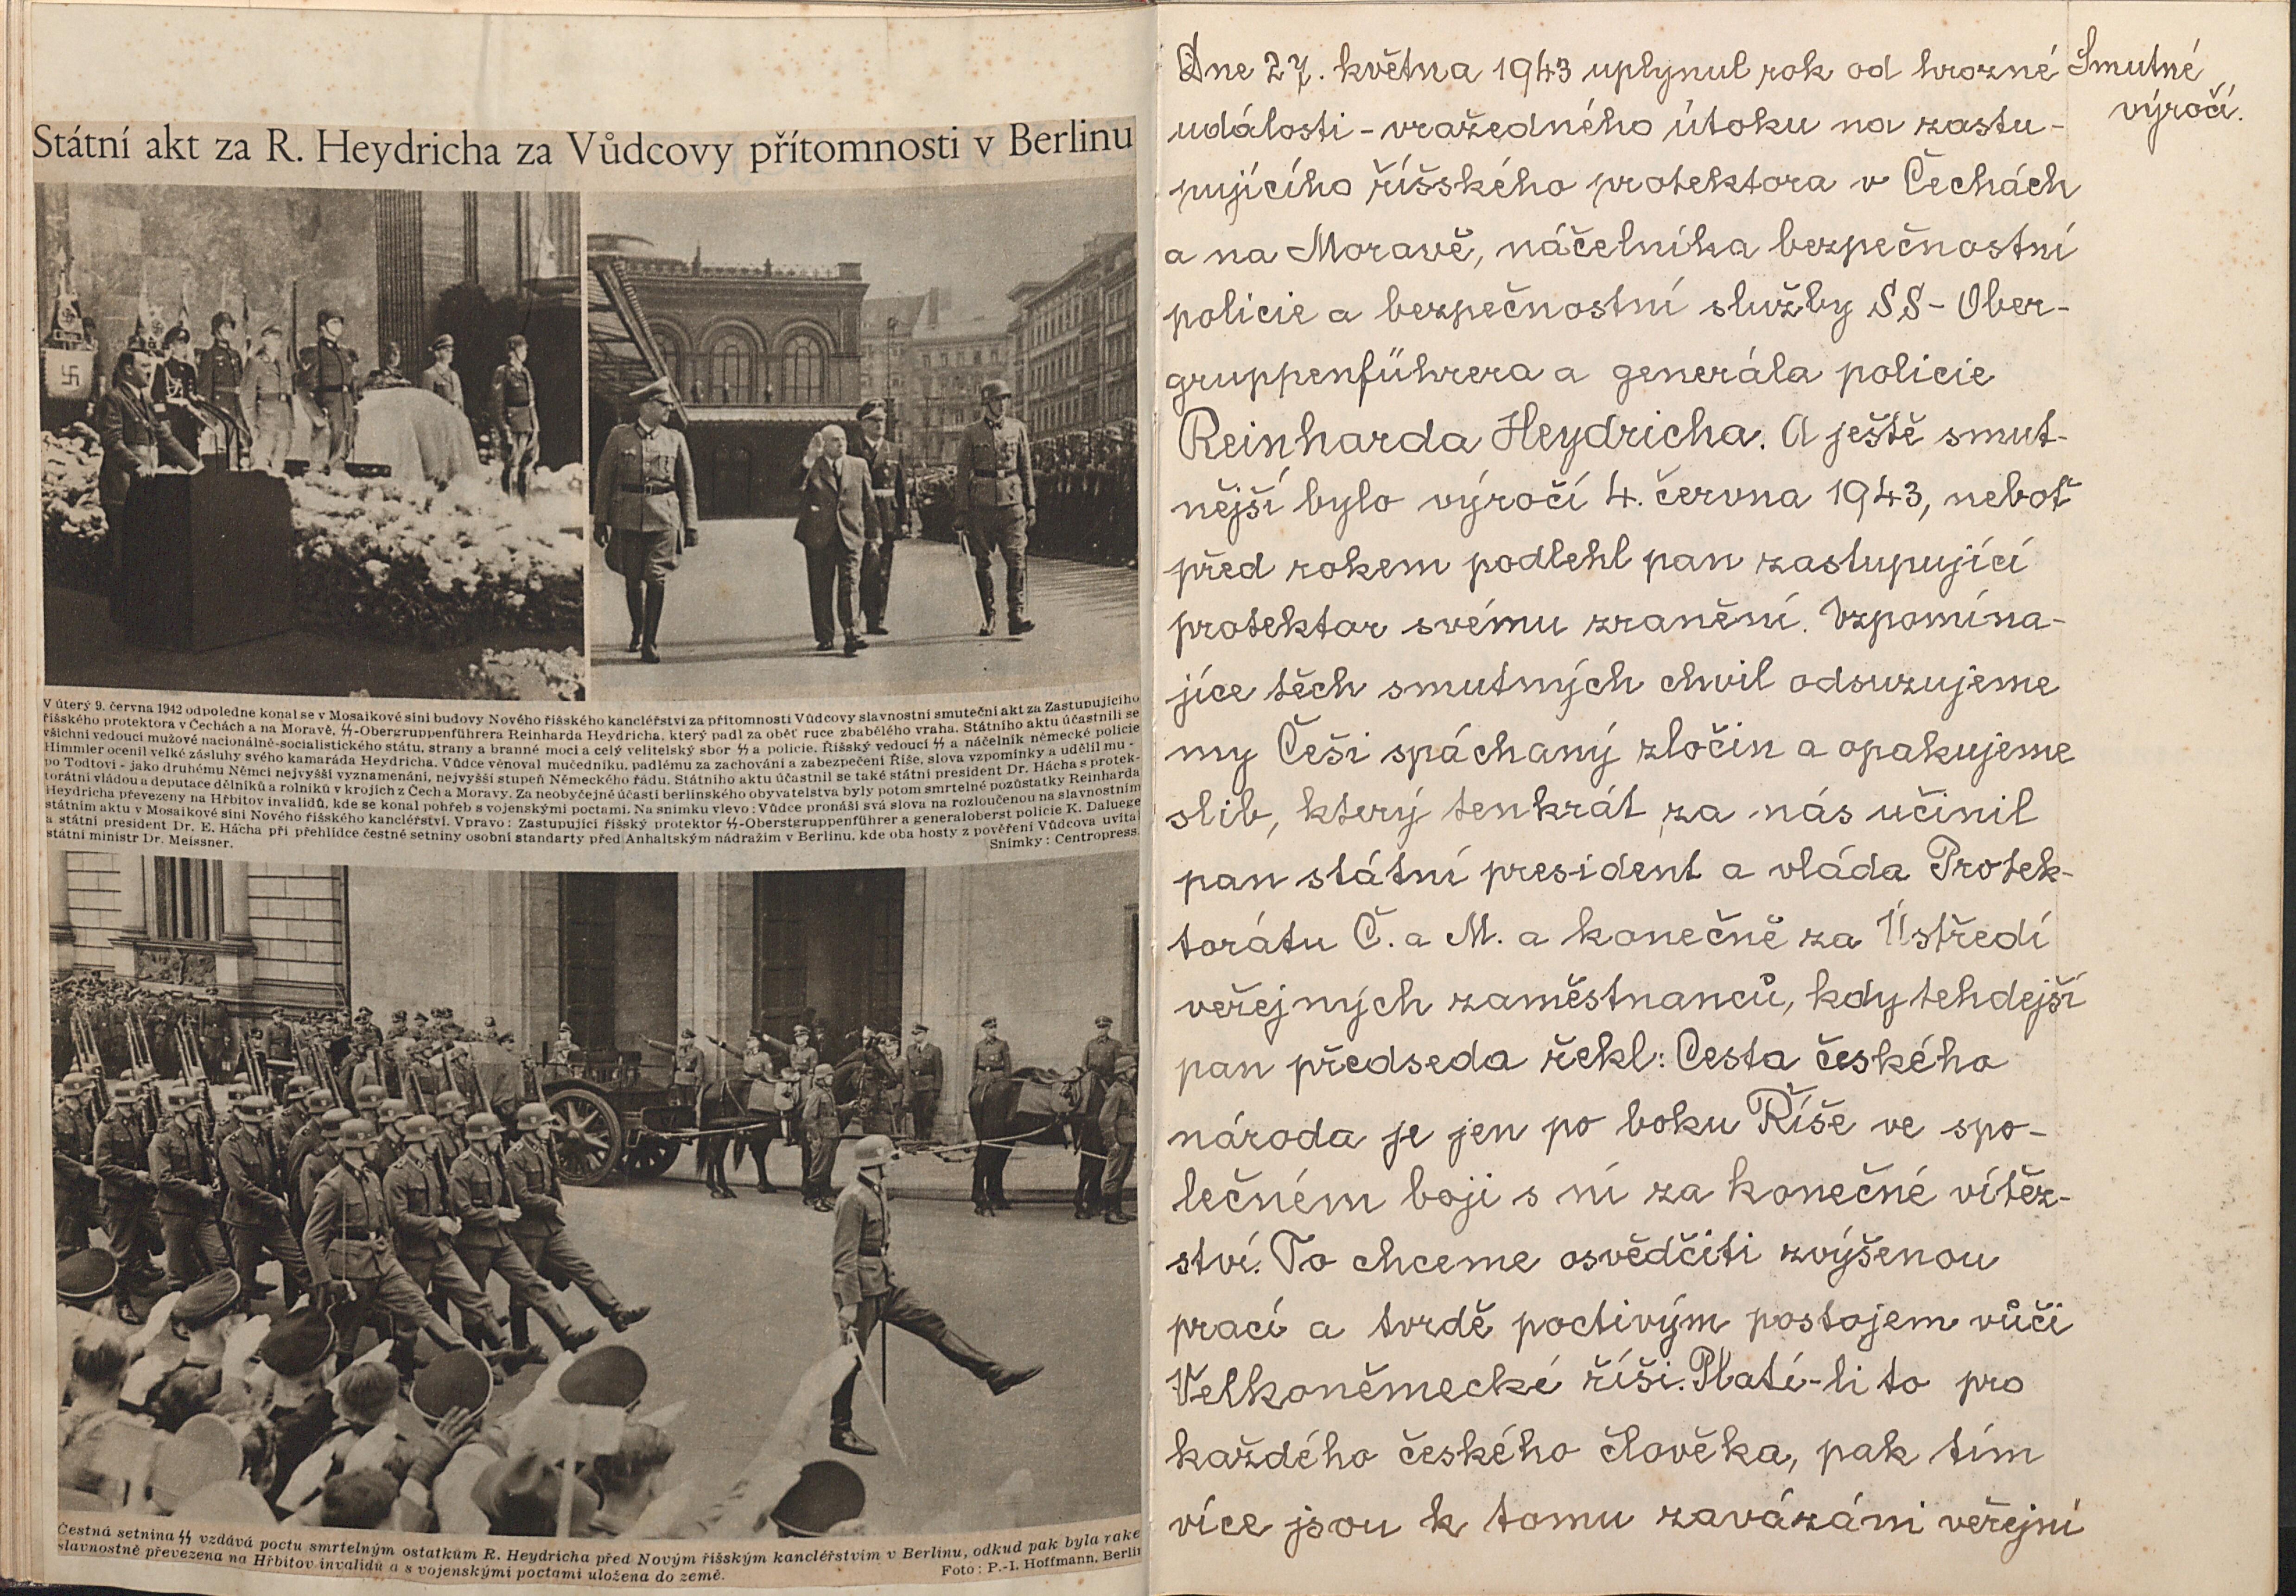 Státní akt za R. Heydricha za Vůdcovy přítomnosti v Berlinu
V úterý 9. června 1942 odpoledne konal se v Mosaikové síni budovy Nového říšského kancléřství za přítomnosti Vůdcovy slavnostní smuteční akt za Zastupujícího
říšského protektora v Čechách a na Moravě, SS-Obergruppenführera Reinharda Heydricha, který padl za oběť ruce zbabělého vraha. Státního aktu účastnili se
všichni vedoucí mužové nacionálně-socialistického státu, strany a branné moci a celý velitelský sbor SS a policie. Říšský vedoucí SS a náčelník německé policie
Himmler ocenil velké zásluhy svého kamaráda Heydricha. Vůdce věnoval mučedníku, padlému za zachování a zabezpečení Říše, slova vzpomínky a udělil mu -
po Todtovi - jako druhému Němci nejvyšší vyznamenání, nejvyšší stupeň Německého řádu. Státního aktu účastnil se také státní president Dr. Hácha s protek-
torátní vládou a deputace dělníků a rolníků v krojích z Čech a Moravy. Za neobyčejné účasti berlinského obyvatelstva byly potom smrtelné pozůstatky Reinharda
Heydricha převezeny na Hřbitov invalidů, kde se konal pohřeb s vojenskými poctami. Na snímku vlevo: Vůdce pronáší svá slova na rozloučenou na slavnostním
státním aktu v Mosaikové síni Nového říšského kancléřství. Vpravo: Zastupující říšský protektor SS-Oberstgruppenführer a generaloberst policie K. Daluege
a státní president Dr. E. Hácha při přehlídce čestné setniny osobní standarty před Anhaltským nádražím v Berlinu, kde oba hosty z pověření Vůdcova uvítal
státní ministr Dr. Meissner. Snímky: Centropress.
Čestná setnina SS vzdává poctu smrtelným ostatkům R. Heydricha před Novým říšským kancléřstvím v Berlinu, odkud pak byla rake
slavnostně převezena na Hřbitov invalidů a s vojenskými poctami uložena do země. Foto: P.-I. Hoffmann, Berlin
Dne 27. května 1943 uplynul rok od hrozné
události - vražedného útoku na zastu-
pujícího říšského protektora v Čechách
a na Moravě, náčelníka bezpečnostní
policie a bezpečnostní služby SS - Ober-
gruppenführera a generála policie
Reinharda Heydricha. A ještě smut-
nější bylo výročí 4. června 1943, neboť
před rokem podlehl pan zastupující
protektor svému zranění. Vzpomína-
jíce těch smutných chvil odsuzujeme
my Češi spáchaný zločin a opakujeme
slib, který tenkrát za nás učinil
pan státní president a vláda Protek-
torátu Č. a M. a konečně za Ústředí
veřejných zaměstnanců, kdy tehdejší
pan předseda řekl: Cesta českého
národa je jen po boku Říše ve spo-
lečném boji s ní za konečné vítěz-
ství. To chceme osvědčiti zvýšenou
prací a tvrdě poctivým postojem vůči
Velkoněmecké říši. Platí-li to pro
každého českého člověka, pak tím
více jsou k tomu zavázáni veřejní
Smutné
výročí.